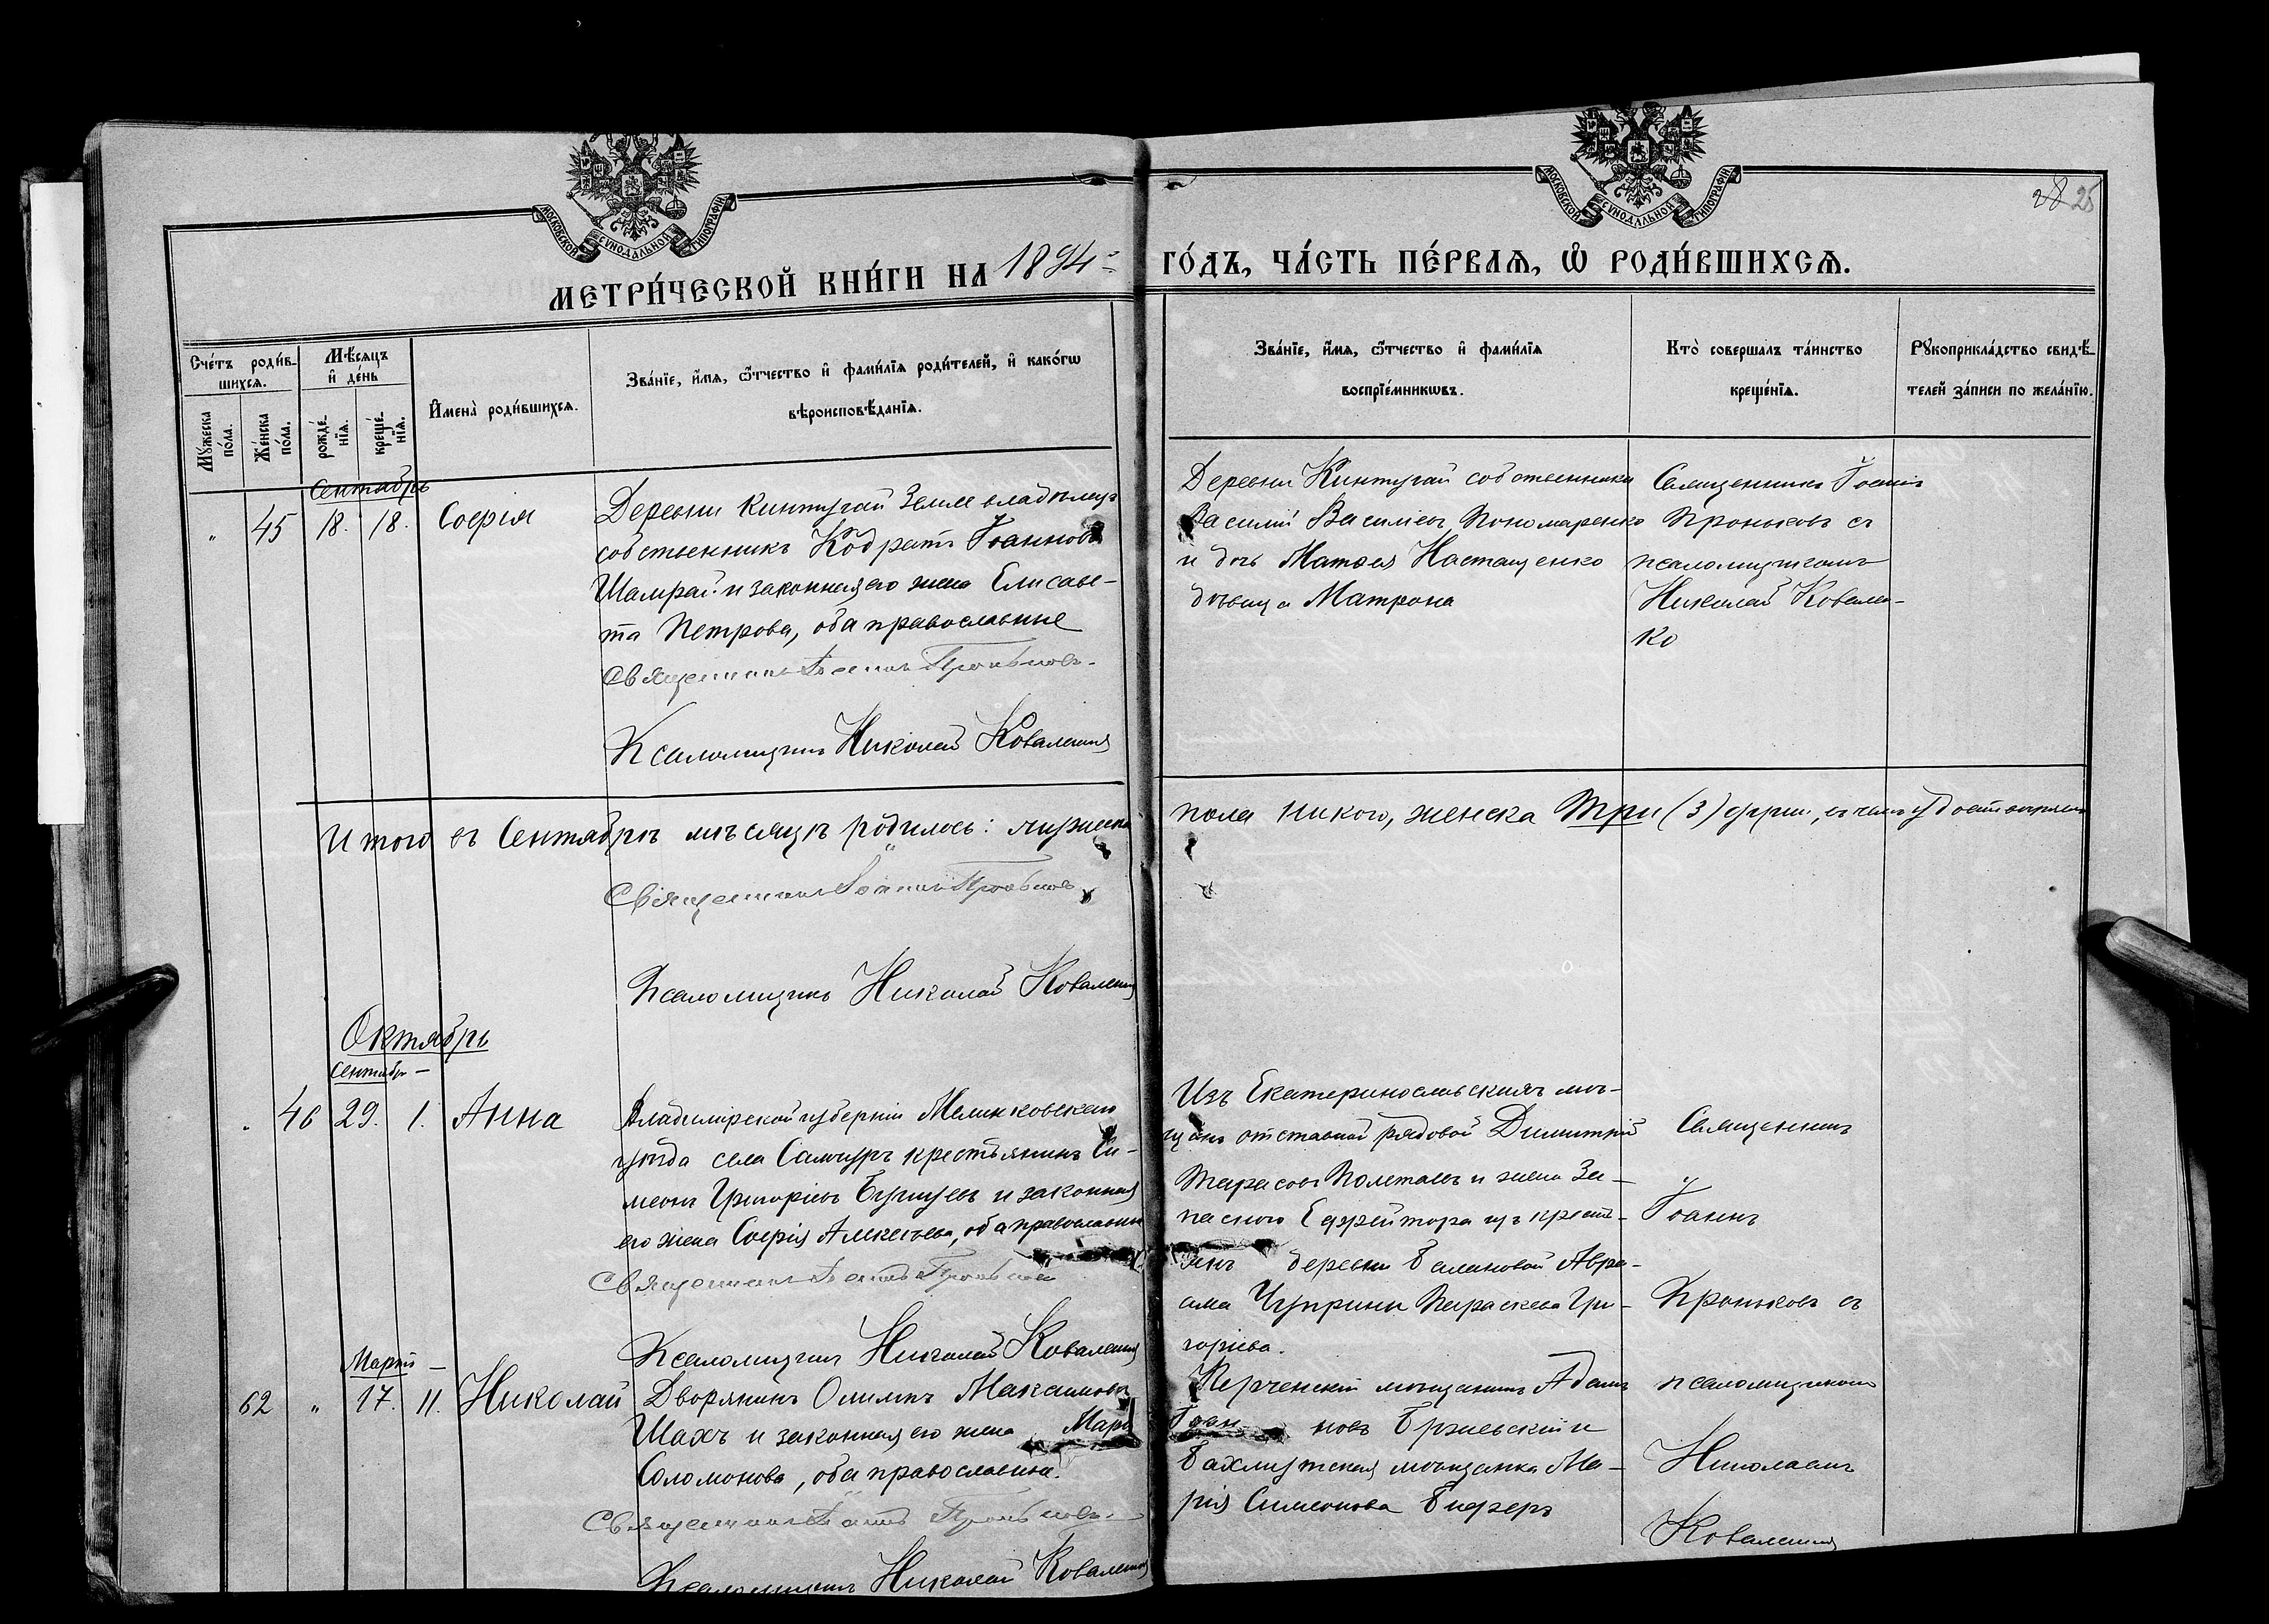 МОСКОВСКОЙ СУНОДАЛЬНОЙ ТИПОГРАФІИ
МОСКОВСКОЙ СУНОДАЛЬНОЙ ТИПОГРАФІИ
28 25
МЕТРИ́ЧЕСКОЙ КНИ́ГИ НА 1894 ГО́ДЪ, ЧА́СТЬ ПЕ́РВАѦ, Ѡ РОДИ́ВШИХСѦ.
Сче́тъ роди́в-
шихсѧ.
Мꙋ́жеска по́ла.
Же́нска по́ла.
Мѣ́сѧцъ
и҆ де́нь
рожде́-
нїѧ.
креще́-
нїѧ.
И҆мена̀ роди́вшихсѧ.
Зва́нїе, и҆́мѧ, ѻ҆́тчество и҆ фами́лїѧ роди́телей, и҆ како́гѡ
вѣроисповѣ́данїѧ.
Зва́нїе, и҆́мѧ, ѻ҆́тчество и҆ фами́лїѧ
воспрїе́мникѡвъ.
Кто̀ совершалъ та́инство
креще́нїѧ.
Рꙋкоприкла́дство свидѣ́-
телей за́писи по жела́нїю.
Сентябрь
" 45 18. 18. Софія
Деревни Кинтугай Землевладѣлецъ
собственникъ Кодратъ Іоанновъ
Шамрай и законная его жена Елисаве-
та Петрова, оба православные
Священникъ Іоаннъ Проньковъ.
Псаломщикъ Николай Коваленко
Деревни Кинтугай собственники
Василій Василіевъ Пономаренко
и дочь Матвея Настащенко
дѣвица Матрона
Священникъ Іоаннъ
Проньковъ съ
псаломщикомъ
Николай Ковален-
ко
Итого въ Сентябрѣ мѣсяцѣ родилось: мужеска
пола никого, женска Три (3) души, въ чемъ удостовѣряемъ
Священникъ Іоаннъ Проньковъ
Псаломщикъ Николай Коваленко
Октябрь
Сентябр —
" 46 29. 1. Анна
Владимірской губерніи Меленковскаго
уѣзда села Самчуръ крестьянинъ Си-
меонъ Григоріевъ и законная
его жена Софія Алексѣева, оба православные
Священникъ Іоаннъ Проньковъ
Псаломщикъ Николай Коваленко
Изъ Екатеринославскихъ мѣ-
щанъ отставной рядовой Димитрій
Тарасовъ Полтавъ и жена За-
паснаго Ефрейтора изъ крестъ-
янъ деревни Балановой Авра-
ама Чуприны Параскева Гри-
горіева.
Священникъ
Іоаннъ
Проньковъ съ
псаломщикомъ
Николаемъ
Коваленко
Мартъ —
62 " 17. 11. Николай
Дворянинъ Олимпъ Максимовъ
Шахъ и законная его жена Марѳа
Соломонова, оба православные.
Священникъ Іоаннъ Проньковъ.
Псаломщикъ Николай Коваленко
Керченскій мѣщанинъ Адамъ
Іоан новъ Бржевскій и
Бахмутская мѣщанка Ма-
рія Симеонова